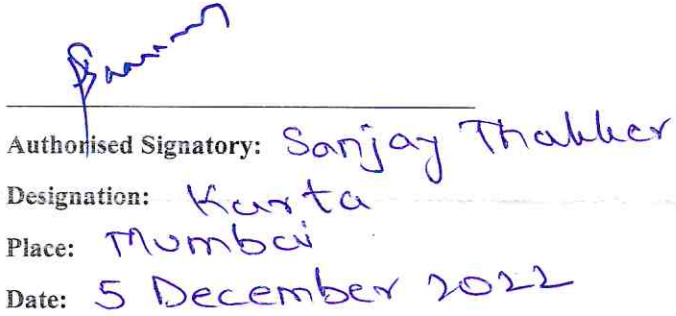 Authorised Signatory: Sanjay Thakker
Designation: Karta
Place: Mumbai
Date: 5 December 2022